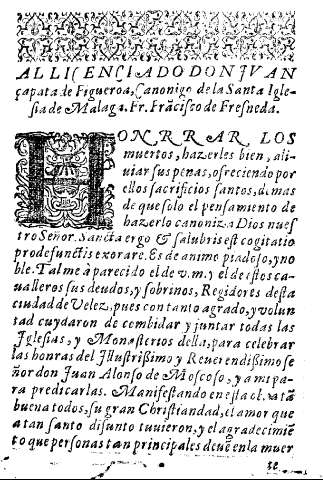 AL LICENCIADO DON IVAN
çapata de Figueroa, Canonigo de la Santa Igle-
sia de Malaga. Fr. Frãcisco de Fresneda.
HONRRAR LOS
muertos, hazerles bien, ali-
uiar sus penas, ofreciendo por
ellos sacrificios santos, demas
de que solo el pensamiento de
hazerlo canoniza Dios nues
tro Señor. Sancta ergo & salubris est cogitatio
pro defunctis exorare. Es de animo piadoso, y no
ble. Tal me à parecido el de v.m. y el de estos ca-
ualleros sus deudos, y sobrinos, Regidores desta
ciudad de Velez, pues con tanto agrado, y volun
tad cuydaron de combidar y juntar todas las
Iglesias, y Monasterios della, para celebrar
las honras del Illustrißimo y Reuerendißimo se
ñor don Juan Alonso de Moscoso, y a mi pa-
ra predicarlas. Manifestando en esta obra tã
buena todos, su gran Christiandad, el amor que
a tan santo difunto tuuieron, y el agradecimiẽ
to que personas tan principales deuẽ en la muer
te